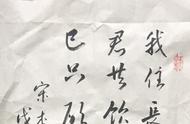 我住長
君共飲
已只願
宋李